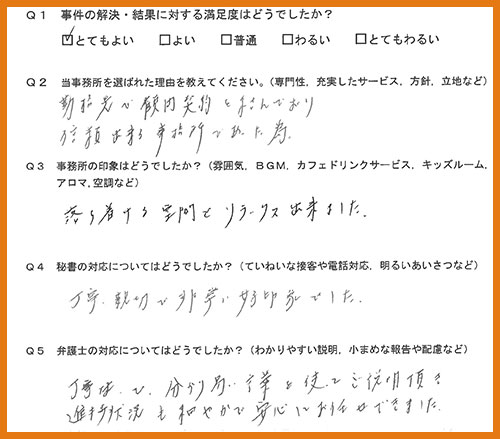 Q1 事件の解決・結果に対する満足度はどうでしたか？
☑とてもよい □よい □普通 □わるい □とてもわるい
Q2 当事務所を選ばれた理由を教えてください。（専門性，充実したサービス，方針，立地など）
勤務先が顧問契約を結んでおり
信頼出来る事務所であった為。
Q3 事務所の印象はどうでしたか？（雰囲気，BGM，カフェドリンクサービス，キッズルーム，
アロマ，空調など）
落ち着ける空間でリラックス出来ました。
Q4 秘書の対応についてはどうでしたか？（ていねいな接客や電話対応，明るいあいさつなど）
丁寧、親切で非常に好印象でした。
Q5 弁護士の対応についてはどうでしたか？（わかりやすい説明，小まめな報告や配慮など）
で、分かり易い言葉を使ってご説明頂き
進捗状況も和やかで安心にお任せできました。